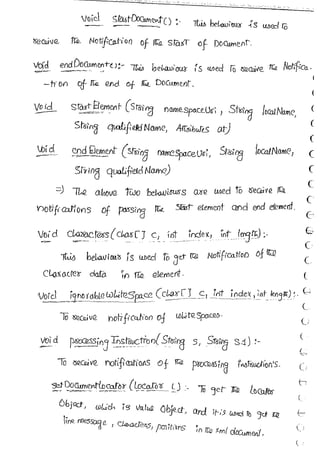 void startDocument() :- This behaviour is used to
receive the Notification of the start of Document.
void endDocument() :- This behaviour is used to receive the Notifica-
-tion of the end of the Document.
void startElement (String namespaceUri, String localName,
String qualifiedName, Attributes at)
void endElement (String nameSpaceUri, String localName,
String qualifiedName)
=) The above two behaviours are used to receive the
notifications of passing the start element and end element.
void characters (char[] c, int index, int length) :-
This behaviour is used to get the Notification of the
Character data in the element.
void ignorableWhiteSpace (char[] c, int index, int length) :-
To receive notification of white spaces.
void processingInstruction (String s, String s1) :-
To receive notifications of the processing instruction's.
setDocumentLocator (Locator L) :- To get the locator
Object, which is value Object, and it is used to get the
line message, characters, positions in the xml document.